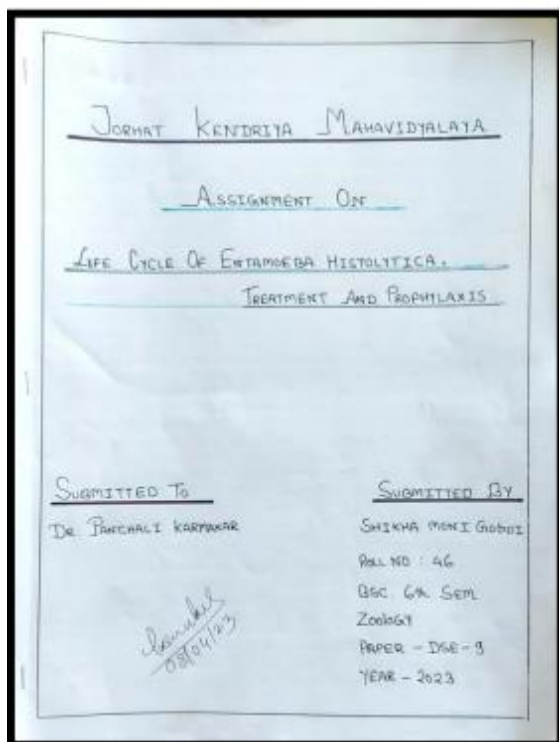 JORHAT KENDRIYA MAHAVIDYALAYA
ASSIGNMENT ON
LIFE CYCLE OF ENTAMOEBA HISTOLYTICA.
TREATMENT AND PROPHYLAXIS
SUBMITTED TO
DR PANCHALI KARMAKAR
SUBMITTED BY
SHIKHA MONI GOGOI
ROLL NO : 46
BSC 6th SEM
ZOOLOGY
PAPER - DSE - 9
YEAR - 2023
08/04/23